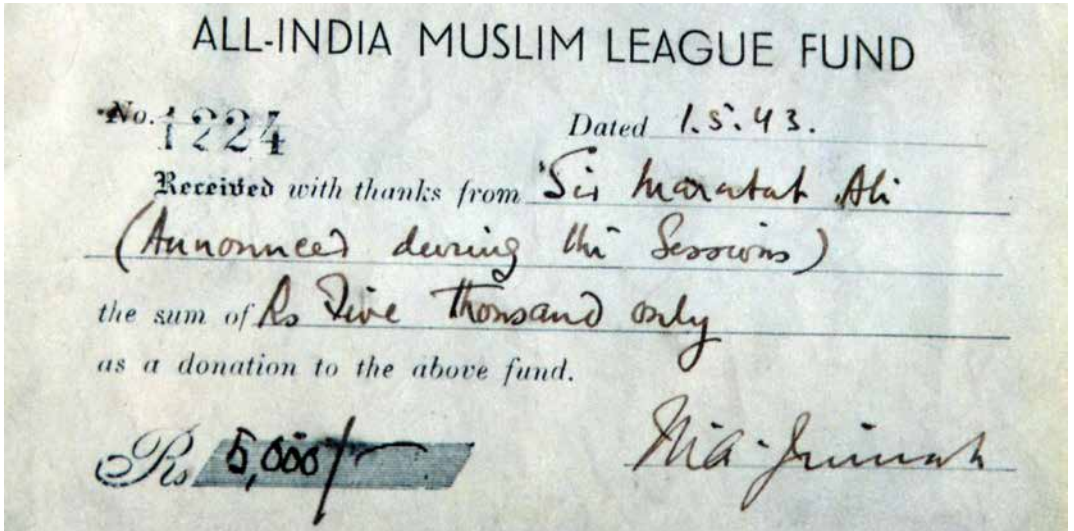 ALL-INDIA MUSLIM LEAGUE FUND
No. 1224 Dated 1.5.43.
Received with thanks from Sir Maratab Ali
(Announced during the Sessions)
the sum of Rs Five thousand only
as a donation to the above fund.
Rs 5,000/- M.A. Jinnah